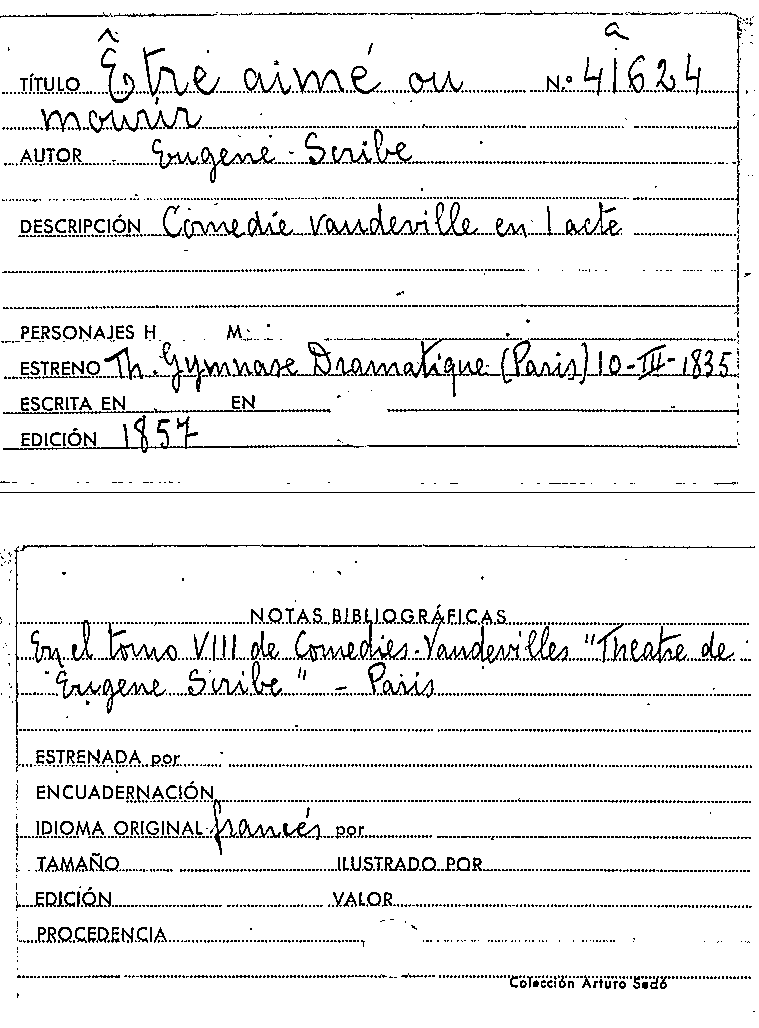 a
TÍTULO Être aimé ou N.º 41624
mourir
AUTOR Eugène Scribe
DESCRIPCIÓN Comedie vaudeville en 1 acte
PERSONAJES H M.
ESTRENO Th. Gymnase Dramatique (Paris) 10-III-1835
ESCRITA EN EN
EDICIÓN 1857
NOTAS BIBLIOGRÁFICAS
En el tomo VIII de Comedies-Vaudevilles "Theatre de
Eugene Scribe" - Paris
ESTRENADA por
ENCUADERNACIÓN
IDIOMA ORIGINAL francés por
TAMAÑO ILUSTRADO POR
EDICIÓN VALOR
PROCEDENCIA
Colección Arturo Sedó